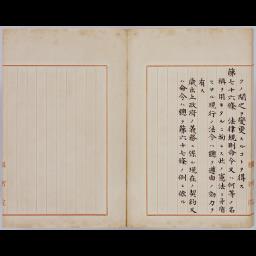 クノ間之ヲ變更スルコトヲ得ス
第七十六條 法律規則命令又ハ何等ノ名
稱ヲ用ヰタルニ拘ラス此ノ憲法ニ矛盾
セサル現行ノ法令ハ總テ遵由ノ効力ヲ
有ス
歳出上政府ノ義務ニ係ル現在ノ契約又
ハ命令ハ總テ第六十七條ノ例ニ依ル